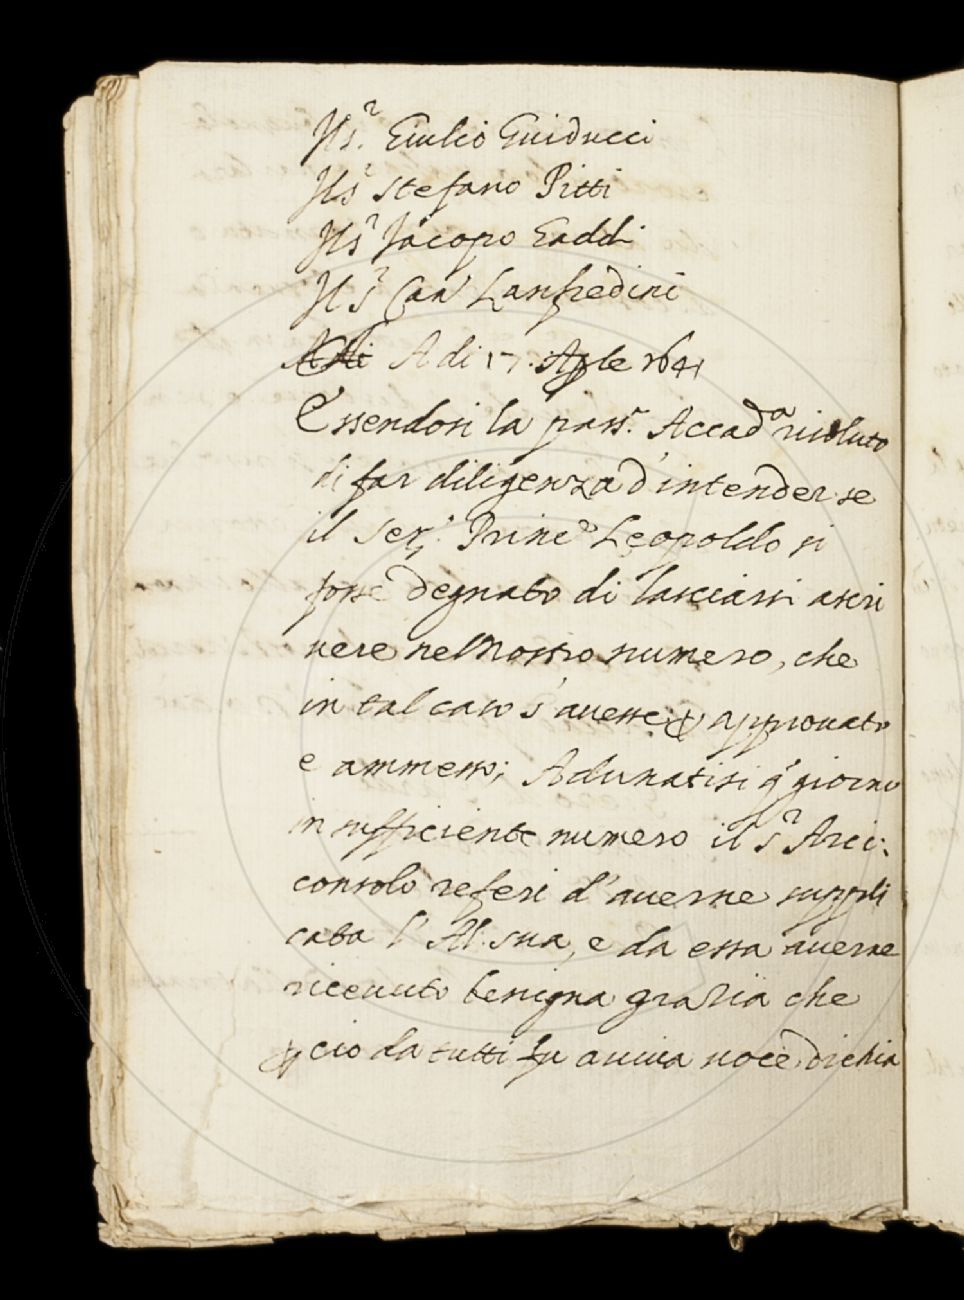 Il S.r Giulio Guiducci
Il S.r Stefano Pitti
Il S.r Jacopo Gaddi
Il S.r Cav Lanfredini
A di 17. Aple 1641
Essendosi la pass.ta Accad.a risoluto
di far diligenza d'intender se
il Ser.mo Princ.e Leopoldo si
fosse degnato di lasciarsi ascri
vere nel Nostro numero, che
in tal caso s'auesse p approuato
e ammesso; Adunatisi q.o giorno
in sufficiente numero il S.r Arci:
consolo referi d'auerne suppli
cata l'Al. sua, e da essa auerne
riceuuto benigna grazia che
p cio da tutti fu a uiua uoce dichia